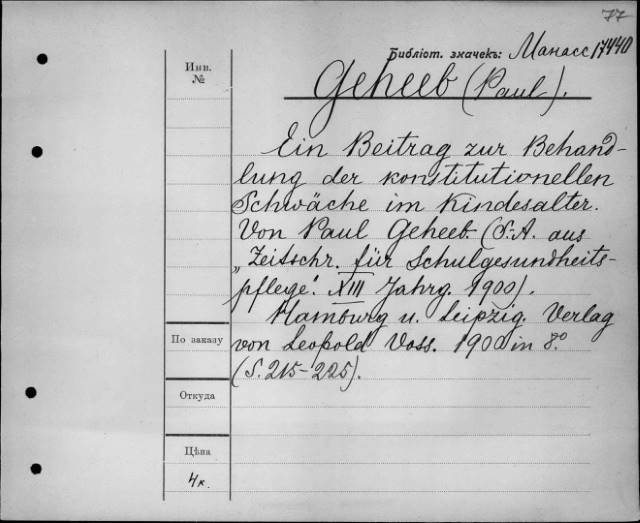 77
Библіот. значекъ: Манасс 17440
Инв.
№
Geheeb (Paul).
Ein Beitrag zur Behand-
lung der konstitutionellen
Schwäche im Kindesalter.
Von Paul Geheeb. (S.-A. aus
„Zeitschr. für Schulgesundheits-
pflege". XIII Jahrg. 1900).
Hamburg u. Leipzig. Verlag
По заказу
von Leopold Voss. 1900 in 8.º
(S. 215-225).
Откуда
Цѣна
4к.